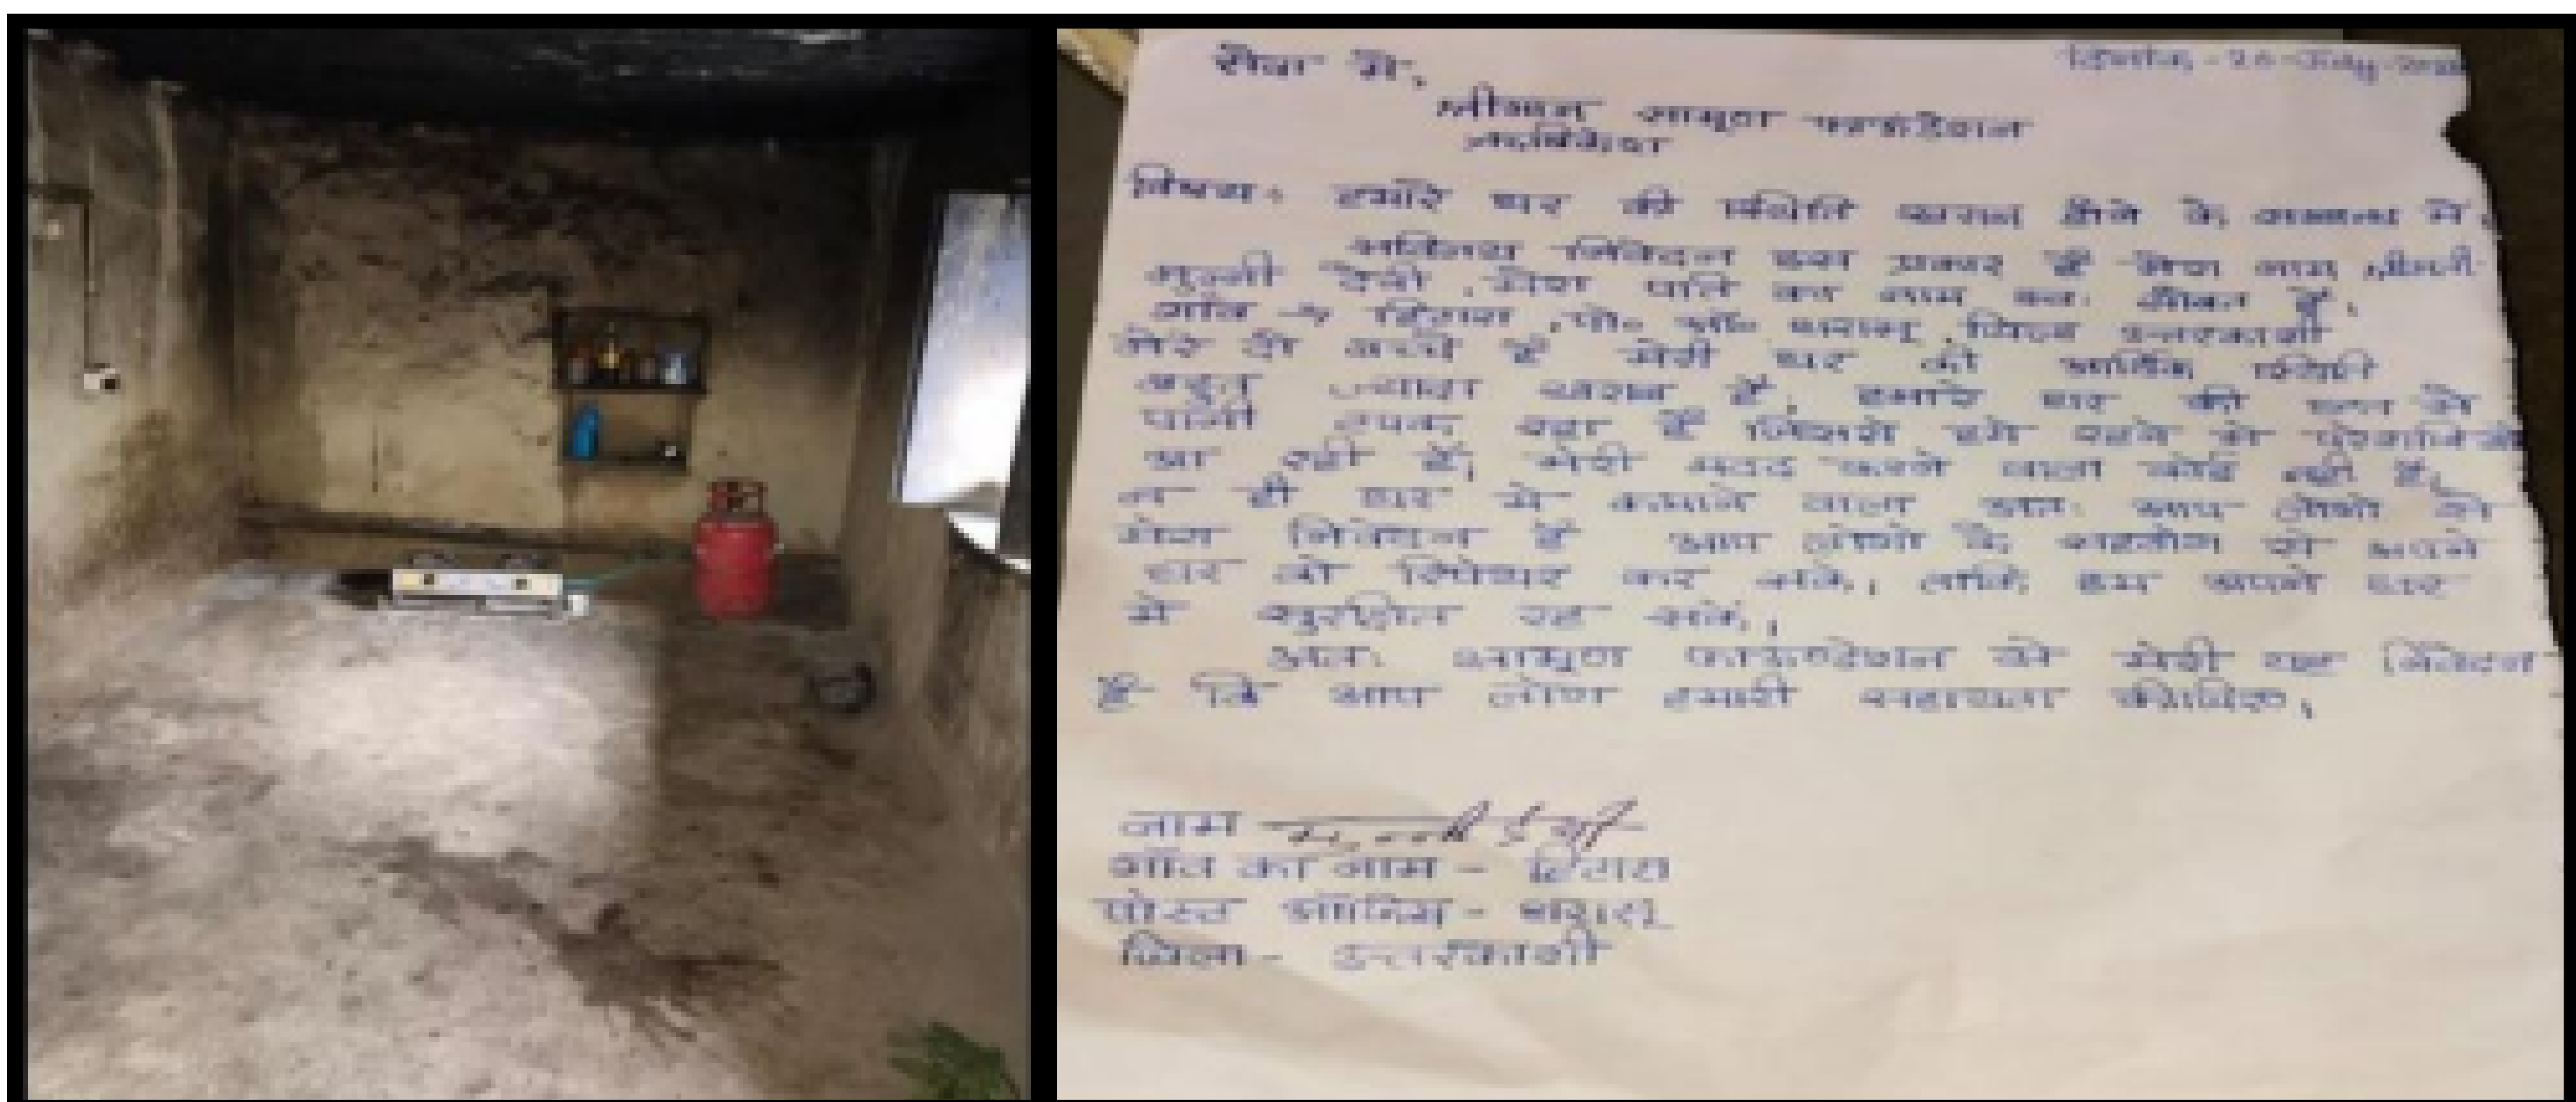 सेवा में,
दिनांक - 26-July-
श्रीमान सामूण फाउंडेशन
ऋषिकेश
विषय: हमारे घर की स्थिति खराब होने के सम्बन्ध में,
सविनय निवेदन इस प्रकार है मेरा नाम श्रीमती
देवी, मेरा पति का नाम स्व. है,
गाँव → पो० ऑ० जिला उत्तरकाशी
मेरे दो बच्चे है मेरी घर की आर्थिक स्थिति
बहुत ज्यादा खराब है, हमारे घर की छत से
पानी टपक रहा है जिससे हमे रहने में
आ रही है, मेरी मदद करने वाला कोई नही है,
न ही घर मे कमाने वाला अतः आप लोगो से
मेरा निवेदन है आप लोगो के सहयोग से अपने
घर को रिपेयर कर सके, ताकि हम अपने घर
मे सुरक्षित रह सके,
अतः सामूण फाउण्डेशन से मेरी यह निवेदन
है कि आप लोग हमारी सहायता कीजिए,
नाम देवी
गाँव का नाम -
पोस्ट ऑफिस -
जिला - उत्तरकाशी